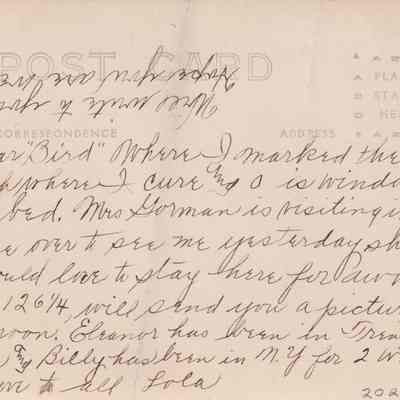 POST CARD
Hope you are
Will write to you
CORRESPONDENCE
ADDRESS
PLA
STA
HE
ar "Bird" Where I marked the
h where I cure and O is windo
bed. Mrs Gorman is visiting i
e over to see me yesterday sh
ould love to stay here for awh
126¼, will send you a pictur
oon. Eleanor has been in Tren
and Billy has been in N.Y for 2 w
ove to all Lola
202